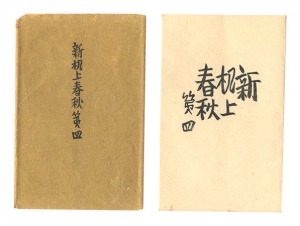 新杌上春秋第四
新
杌上
春秋
第四